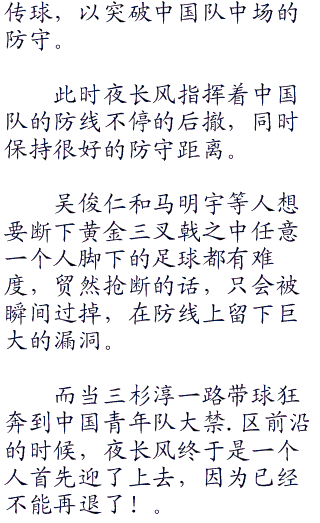 传球，以突破中国队中场的
防守。
此时夜长风指挥着中国
队的防线不停的后撤，同时
保持很好的防守距离。
吴俊仁和马明宇等人想
要断下黄金三叉戟之中任意
一个人脚下的足球都有难
度，贸然抢断的话，只会被
瞬间过掉，在防线上留下巨
大的漏洞。
而当三杉淳一路带球狂
奔到中国青年队大禁.区前沿
的时候，夜长风终于是一个
人首先迎了上去，因为已经
不能再退了！。